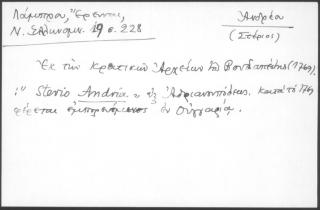 Λάμπρου, Ἔρευναι,
Ν. Ἑλληνομν. 19 σ. 228
Ἀνδρέα
(Στέριος)
Ἐκ τῶν Κρατικῶν Ἀρχείων τῆς Βουδαπέστης (1769).
:" Sterio Andria" ἐξ Ἀδριανουπόλεως, κατὰ τὸ 1769
φέρεται ἐμπορευόμενος ἐν Οὑγγαρίᾳ.